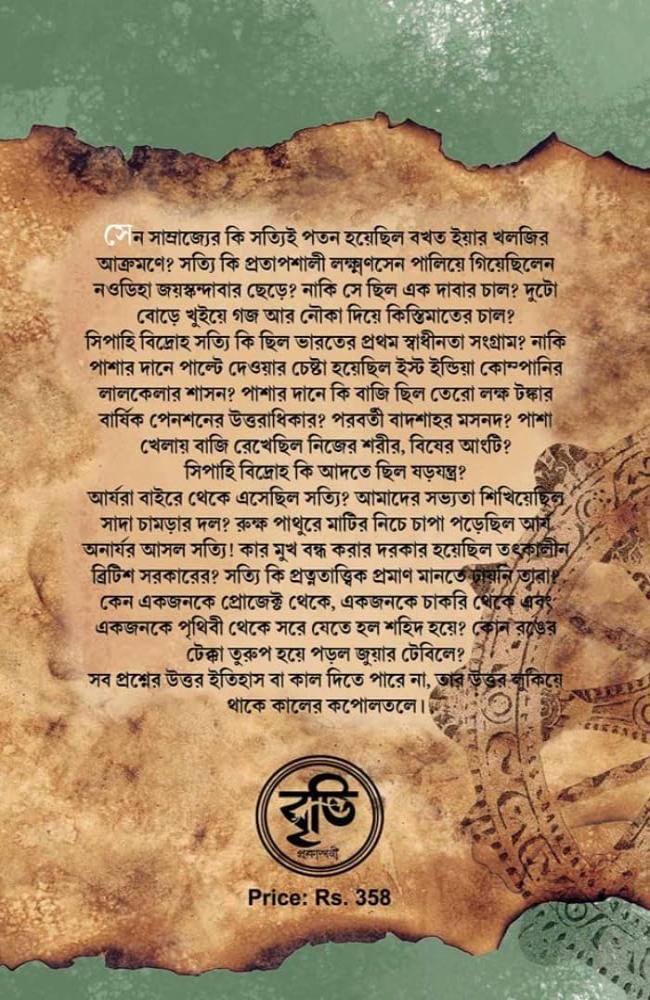 সেন সাম্রাজ্যের কি সত্যিই পতন হয়েছিল বখত ইয়ার খলজির
আক্রমণে? সত্যি কি প্রতাপশালী লক্ষ্মণসেন পালিয়ে গিয়েছিলেন
নওডিহা জয়স্কন্দাবার ছেড়ে? নাকি সে ছিল এক দাবার চাল? দুটো
বোড়ে খুইয়ে গজ আর নৌকা দিয়ে কিস্তিমাতের চাল?
সিপাহি বিদ্রোহ সত্যি কি ছিল ভারতের প্রথম স্বাধীনতা সংগ্রাম? নাকি
পাশার দানে পাল্টে দেওয়ার চেষ্টা হয়েছিল ইস্ট ইন্ডিয়া কোম্পানির
লালকেলার শাসন? পাশার দানে কি বাজি ছিল তেরো লক্ষ টঙ্কার
বার্ষিক পেনশনের উত্তরাধিকার? পরবর্তী বাদশাহর মসনদ? পাশা
খেলায় বাজি রেখেছিল নিজের শরীর, বিষের আংটি?
সিপাহি বিদ্রোহ কি আদতে ছিল ষড়যন্ত্র?
আর্যরা বাইরে থেকে এসেছিল সত্যি? আমাদের সভ্যতা শিখিয়েছিল
সাদা চামড়ার দল? রুক্ষ পাথুরে মাটির নিচে চাপা পড়েছিল আর্য
অনার্যর আসল সত্যি! কার মুখ বন্ধ করার দরকার হয়েছিল তৎকালীন
ব্রিটিশ সরকারের? সত্যি কি প্রত্নতাত্ত্বিক প্রমাণ মানতে চায়নি তারা?
কেন একজনকে প্রোজেক্ট থেকে, একজনকে চাকরি থেকে এবং
একজনকে পৃথিবী থেকে সরে যেতে হল শহিদ হয়ে? কোন রঙের
টেক্কা তুরুপ হয়ে পড়ল জুয়ার টেবিলে?
সব প্রশ্নের উত্তর ইতিহাস বা কাল দিতে পারে না, তার উত্তর লুকিয়ে
থাকে কালের কপোলতলে।
বৃত্তি
প্রকাশনী
Price: Rs. 358